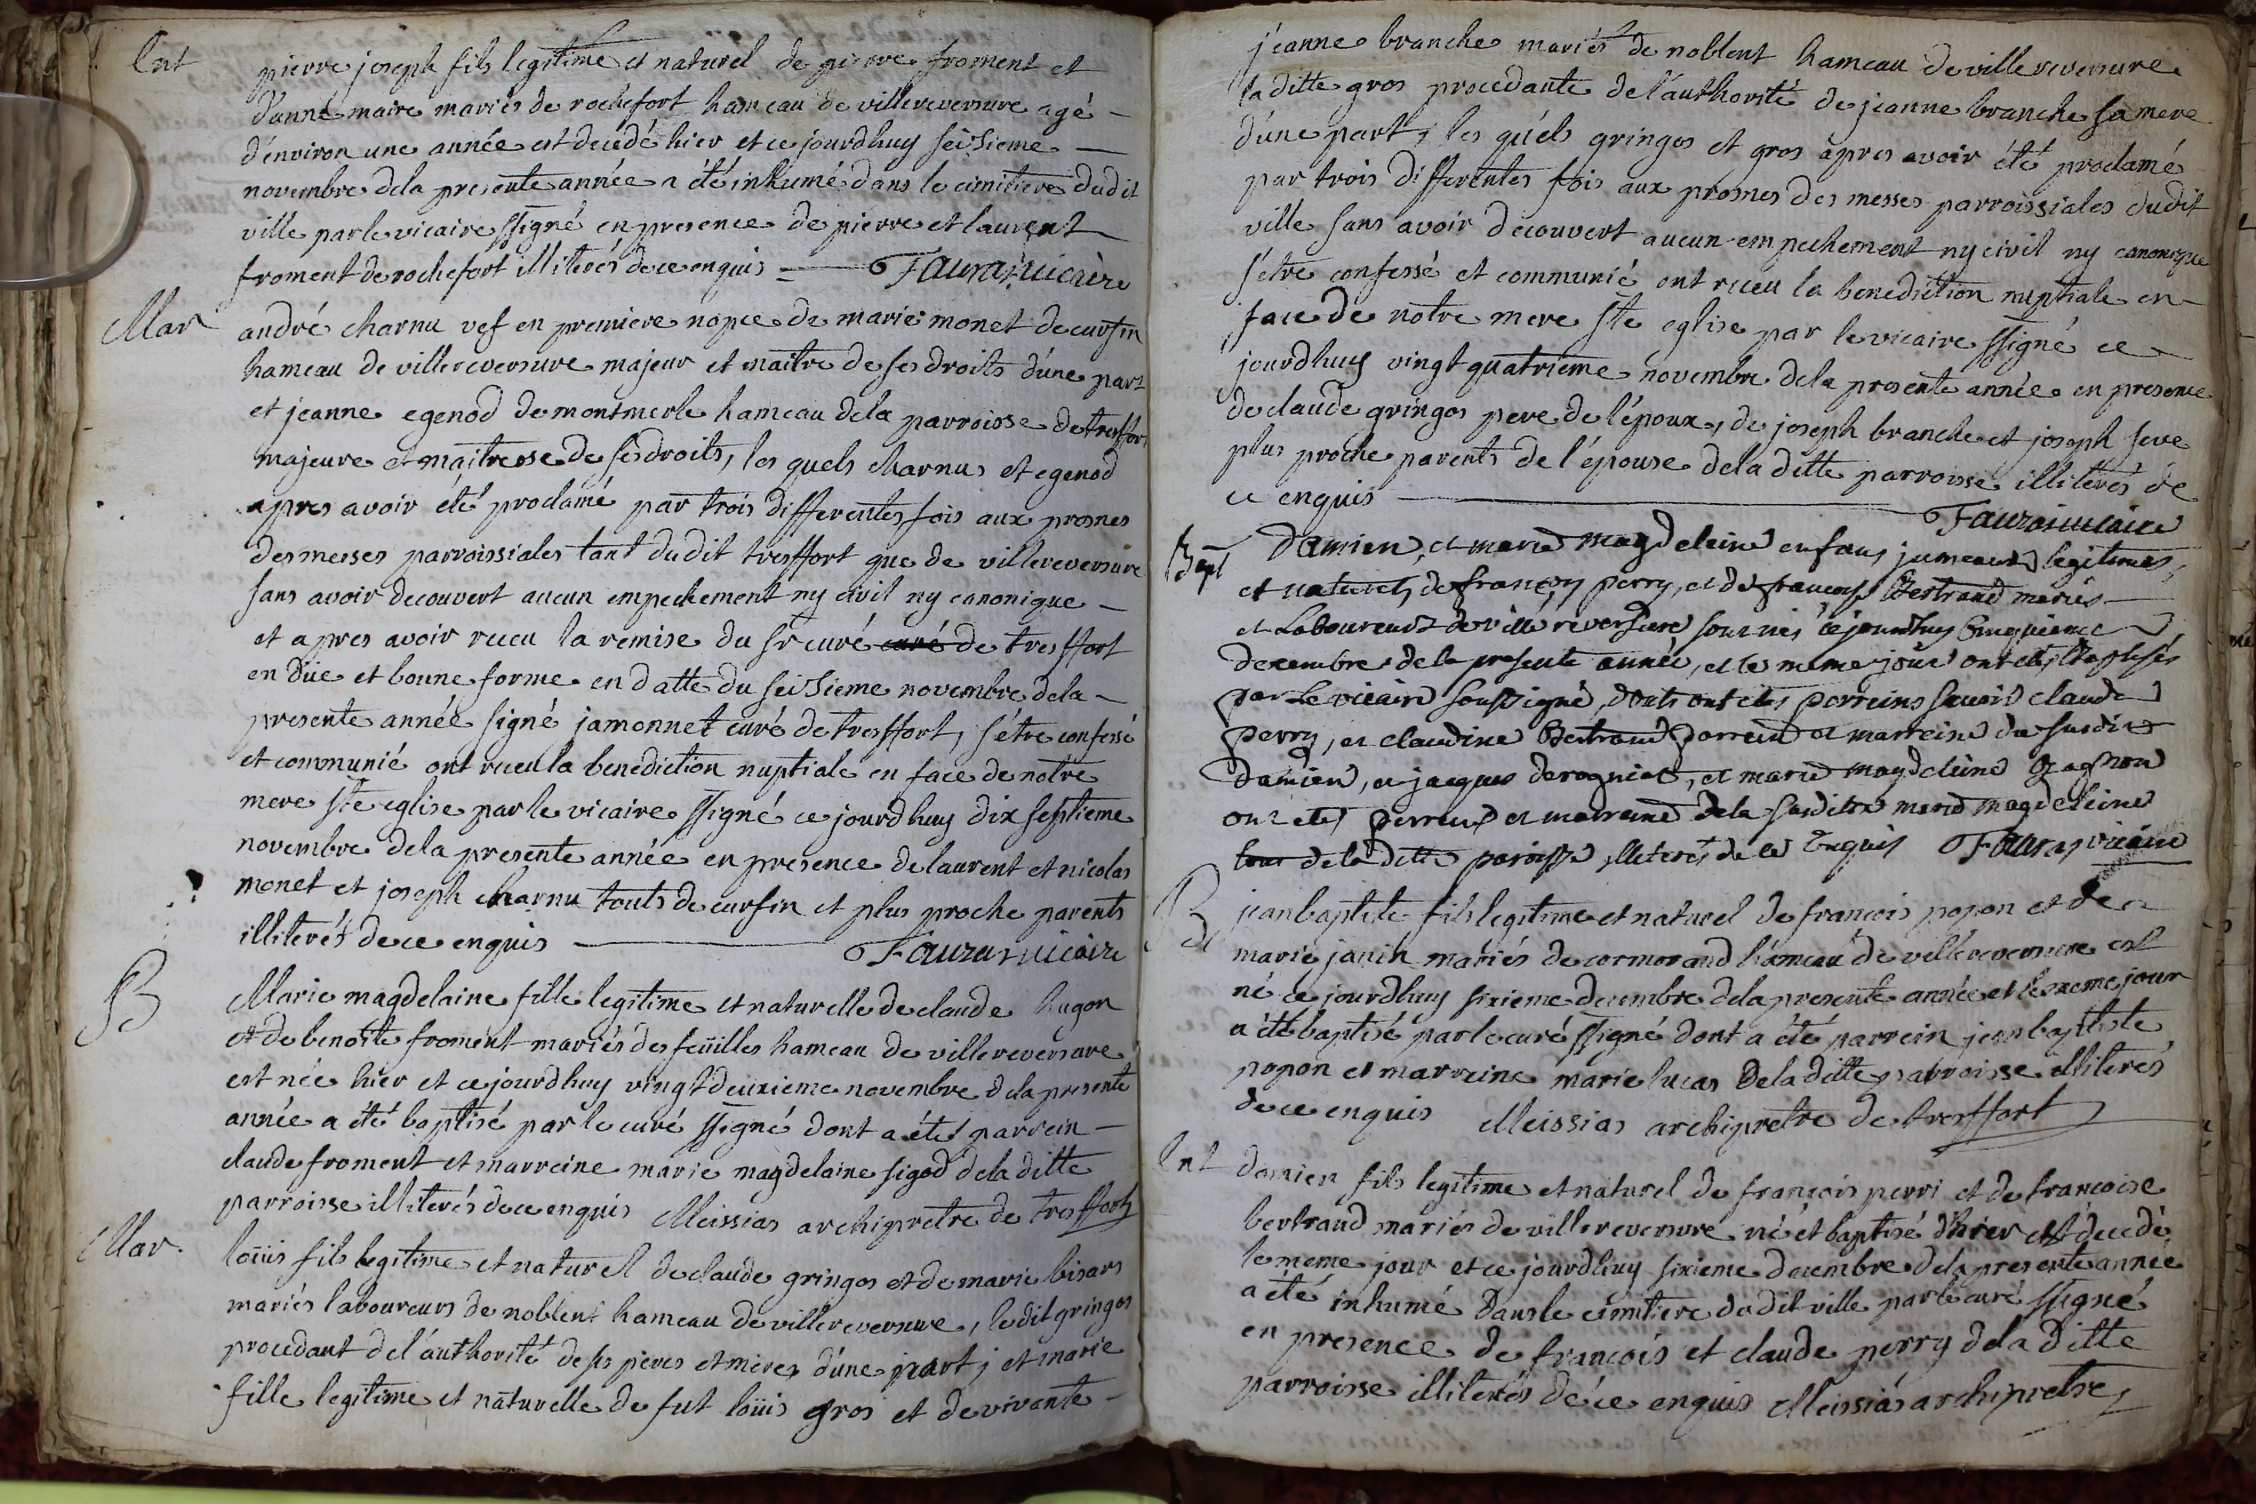 Ent
pierre joseph fils legitime et naturel de pierre froment et
d'anne maire mariés de rochefort hameau de villereversure agé
d'environ une année est decedé hier et ce jourdhuy seisieme
novembre dela presente année a été inhumé dans le cimitiere dudit
ville par le vicaire ssigné en presence de pierre et laurent
froment de rochefort illiterés de ce enquis Fauras vicaire
Mar
andré charnu vef en premiere nopce de marie monet de cursin
hameau de villereversure majeur et maitre de ses droits d'une part
et jeanne egenod de montmerle hameau dela parroisse de treffort
majeure et maitresse de ses droits, les quels charnus et egenod
apres avoir été proclamé par trois differentes fois aux prosnes
des messes parroissiales tant dudit tresffort que de villereversure
sans avoir decouvert aucun empechement ny civil ny canonique
et apres avoir receu la remise du sr curé curé de tresffort
en düe et bonne forme en datte du seisieme novembre dela
presente année signé jamonnet curé de tresffort, s'etre confessé
et communié ont receu la benediction nuptiale en face de notre
mere ste eglise par le vicaire ssigné ce jourdhuy dix septieme
novembre dela presente année en presence de laurent et nicolas
monet et joseph charnu touts de cursin et plus proche parents
illiterés de ce enquis Fauras vicaire
B
Marie magdelaine fille legitime et naturelle de claude hugon
et de benoite froment mariés des feüilles hameau de villereversure
est née hier et ce jourdhuy vingt deuxieme novembre dela presente
année a été baptisé par le curé ssigné dont a été parrein
claude froment et marreine marie magdelaine sigod dela ditte
parroisse illiterés de ce enquis Meissias archipretre de tresffort
Mar.
loüis fils legitime et naturel de claude gringos et de marie bisars
mariés laboureurs de noblent hameau de villereversure, ledit gringos
procedant de l'authorité de ses peres et meres d'une part; et marie
fille legitime et naturelle de fut loüis gros et de vivante
jeanne branche mariés de noblent hameau de villereversure
la ditte gros procedante de l'authorité de jeanne branche sa mere
d'une part, les quels gringos et gros apres avoir été proclamé
par trois differentes fois aux prosnes des messes parroissiales dudit
ville sans avoir decouvert aucun empechement ny civil ny canonique
s'etre confessé et communié ont receu la benediction nuptiale en
face de notre mere ste eglise par le vicaire ssigné ce
jourdhuy vingt quatrieme novembre dela presente année en presence
de claude gringos pere de l'époux, de joseph branche et joseph seve
plus proche parents de l'épouse dela ditte parroisse illiterés de
ce enquis
Fauras vicaire
Bapt
Damien, et marie magdeleine enfans jumeaux legitimes
et naturels de françois perry, et de francoise Bertrand mariés
et Laboureurs de ville reversure sont nés cejourdhuy cinquieme
decembre de la presente année, et le meme jour ont etés Baptisés
par Le vicaire soussigné, dont ont etés perreins savoir claude
perry, et claudine Bertrand perrein et marreine du susdit
Damien, et jacques derognat, et marie magdeleine gagnon
ont etés perrein et marreine dela susditte marie magdeleine
tous dela ditte paroisse illeterés de ce enquis Fauras vicaire
B
jean baptiste fils legitime et naturel de francois popon et de
marie janin mariés de cormorand hameau de villereversure est
né ce jourdhuy sixieme decembre dela presente année et le meme jour
a été baptisé par le curé ssigné dont a été parrein jean baptiste
popon et marreine marie lucas dela ditte parroisse illiterés
de ce enquis Meissias archipretre de tresffort
Ent
damien fils legitime et naturel de francois perri et de francoise
bertrand mariés de villereversure né et baptisé d'hier est decedé
le meme jour et ce jourdhuy sixieme decembre dela presente année
a été inhumé dans le cimitiere dudit ville par le curé ssigné
en presence de francois et claude perry dela ditte
parroisse illiterés de ce enquis Meissias archipretre